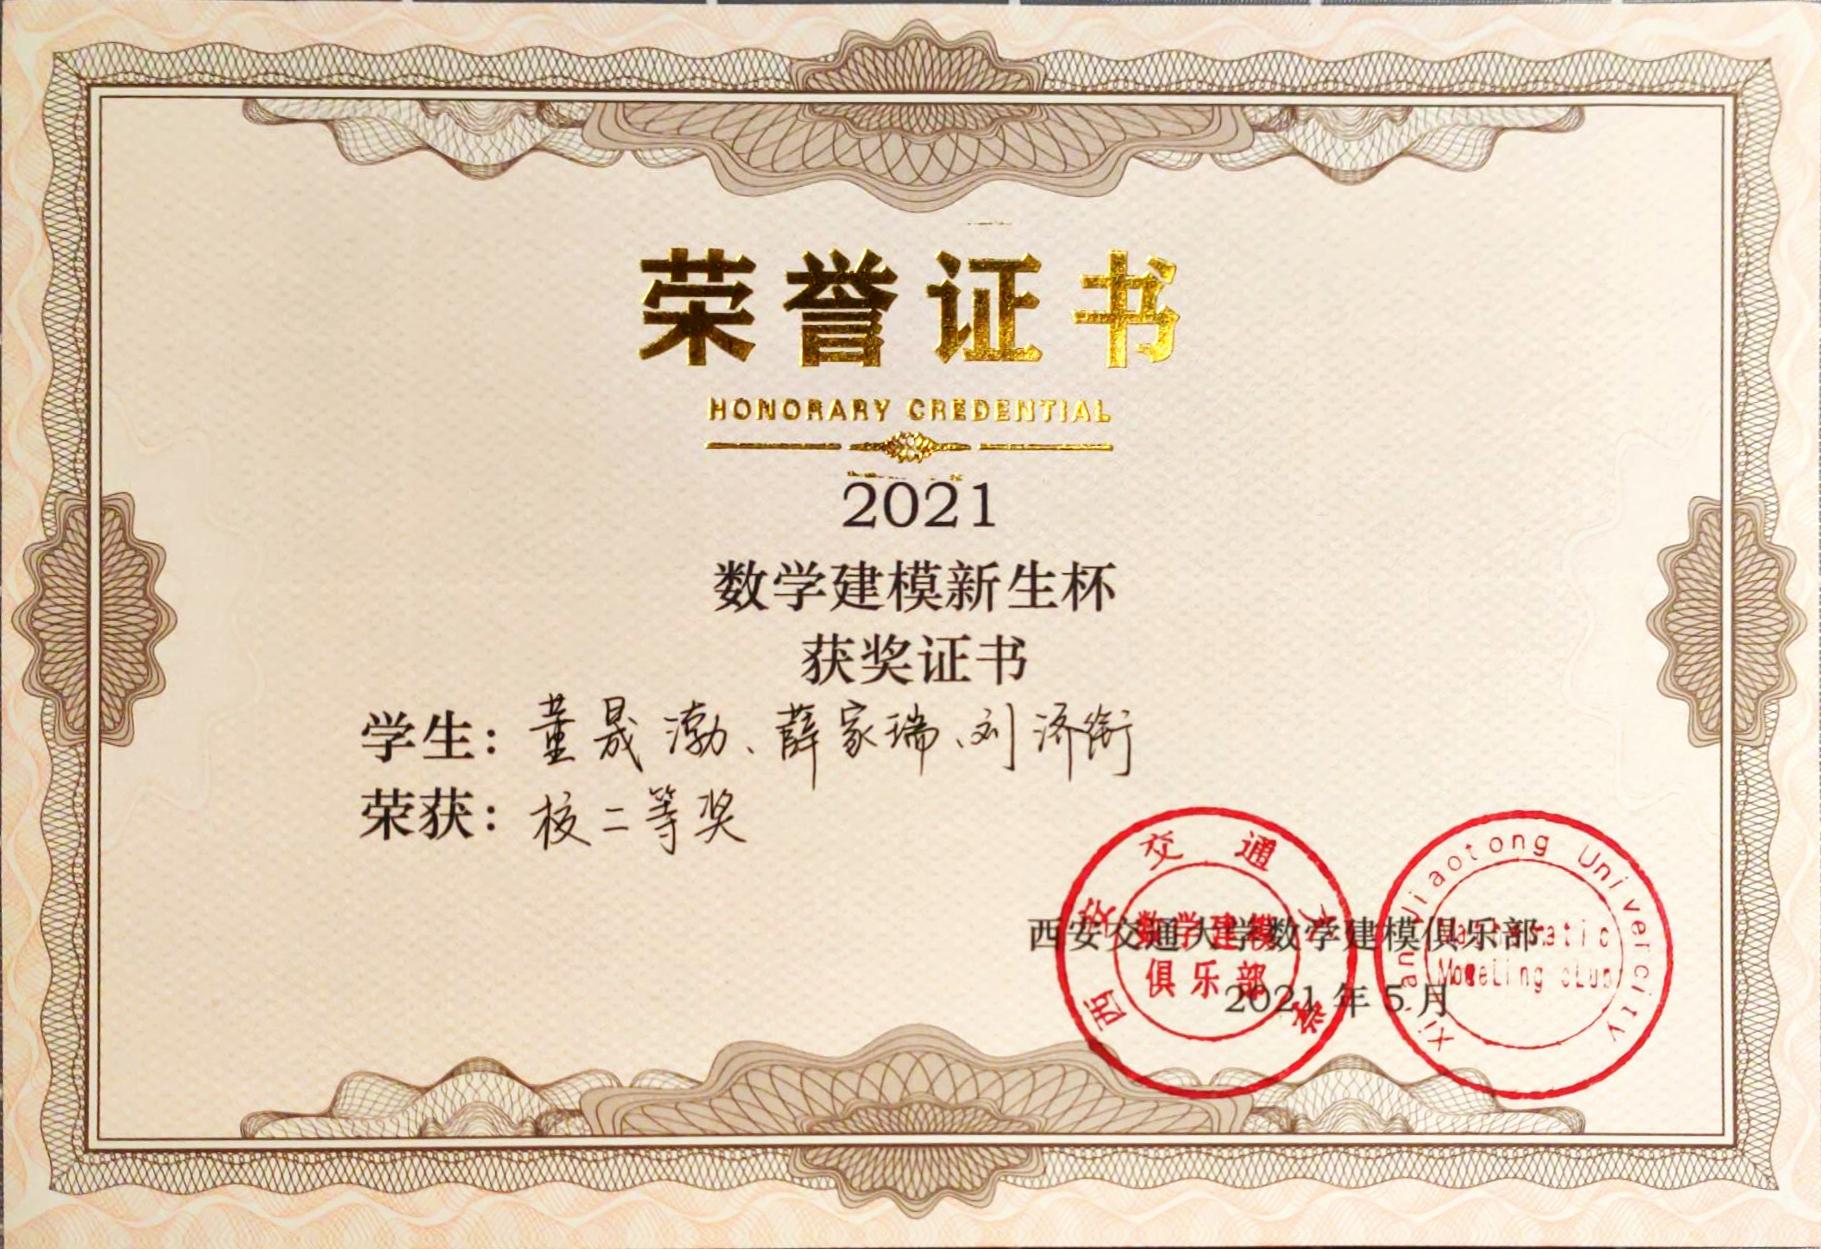 荣誉证书
HONORARY CREDENTIAL
2021
数学建模新生杯
获奖证书
学生：董晟渤、薛家瑞、刘济衔
荣获：校二等奖
西安交通大学数学建模俱乐部
2021年5月
西安交通大学
数学建模
俱乐部
Xi'an Jiaotong Univercity
Mathematic
Modeling cLub